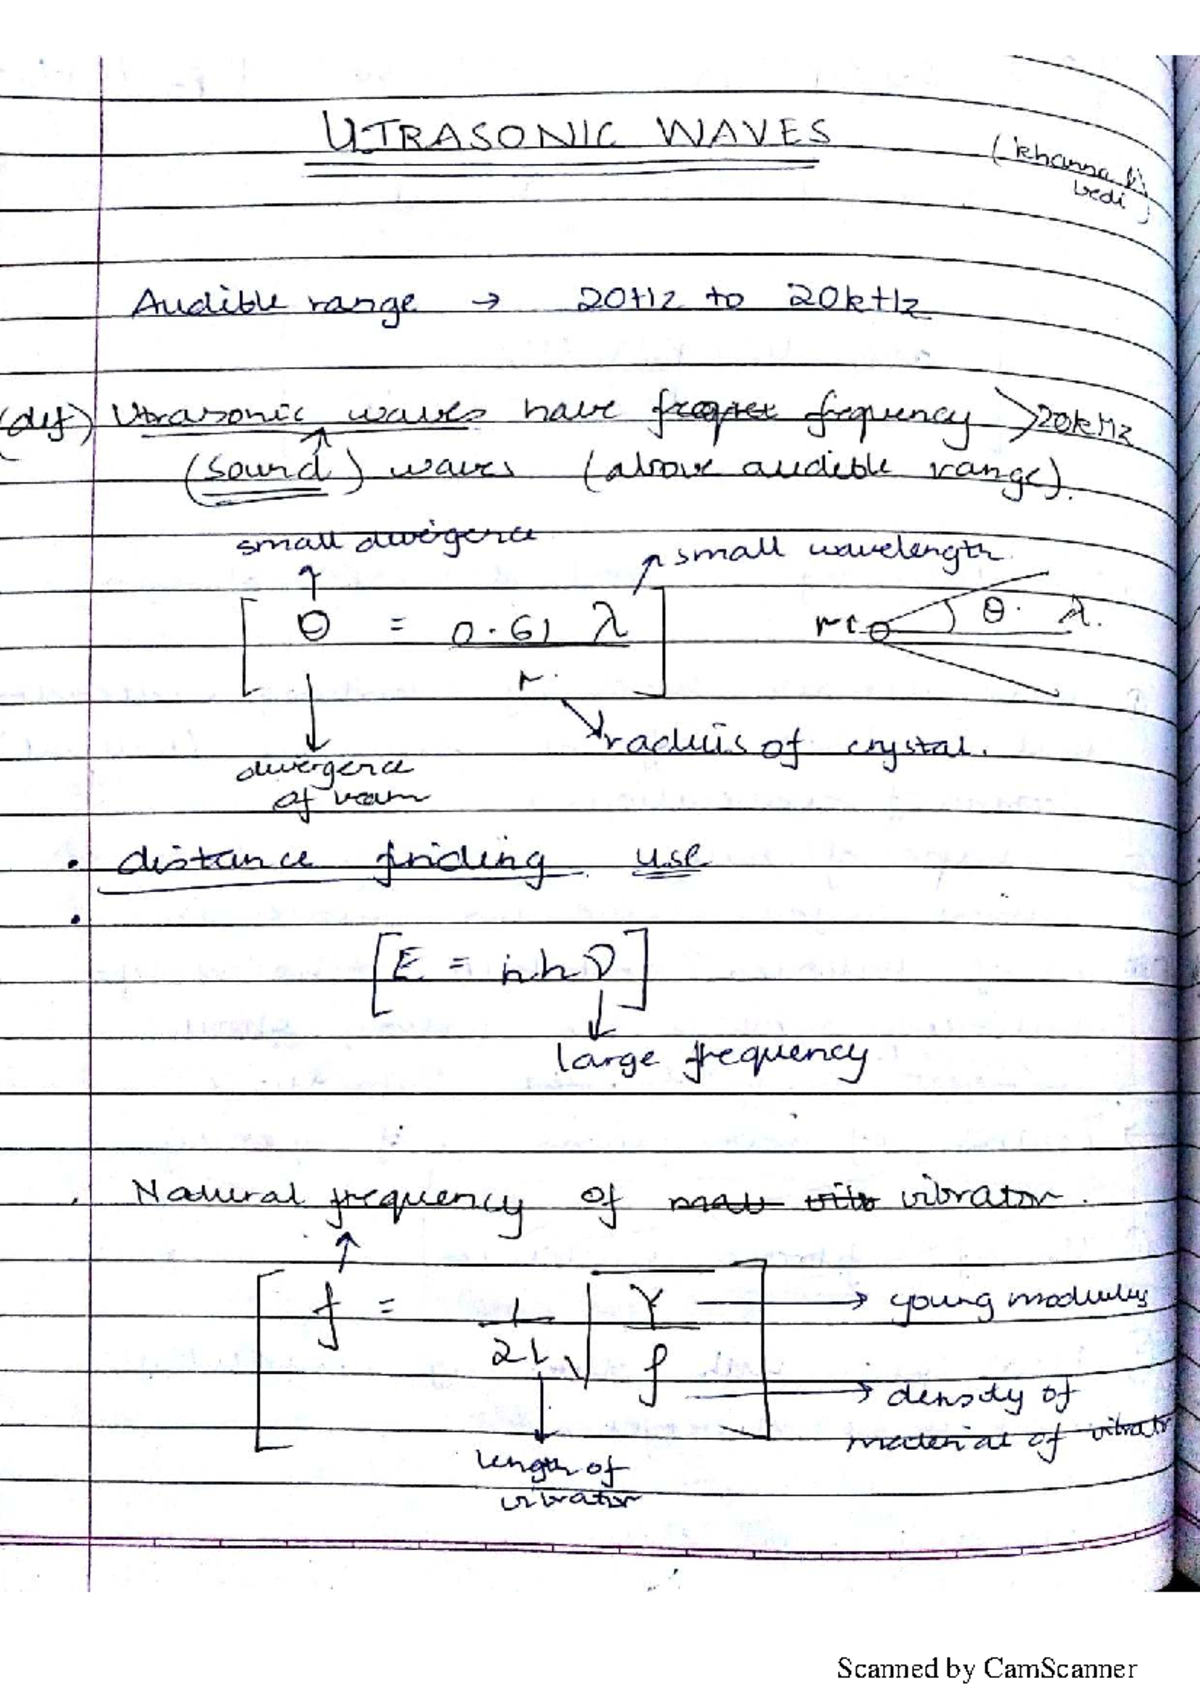 ULTRASONIC WAVES
(khanna &
bedi)
Audible range → 20Hz to 20kHz
(def) Utrasonic waves have frequency >20kHz
(sound) waves (above audible range).
small divergence
small wavelength.
[ θ = 0.61 λ / r ]
θ. λ.
radius of crystal.
divergence
of beam
• distance finding use
•
[E = nhν]
large frequency
Natural frequency of vibrator.
[ f = 1/2l √Y/ρ ]
→ young modulus
→ density of
material of vibratr
length of
vibrator
Scanned by CamScanner